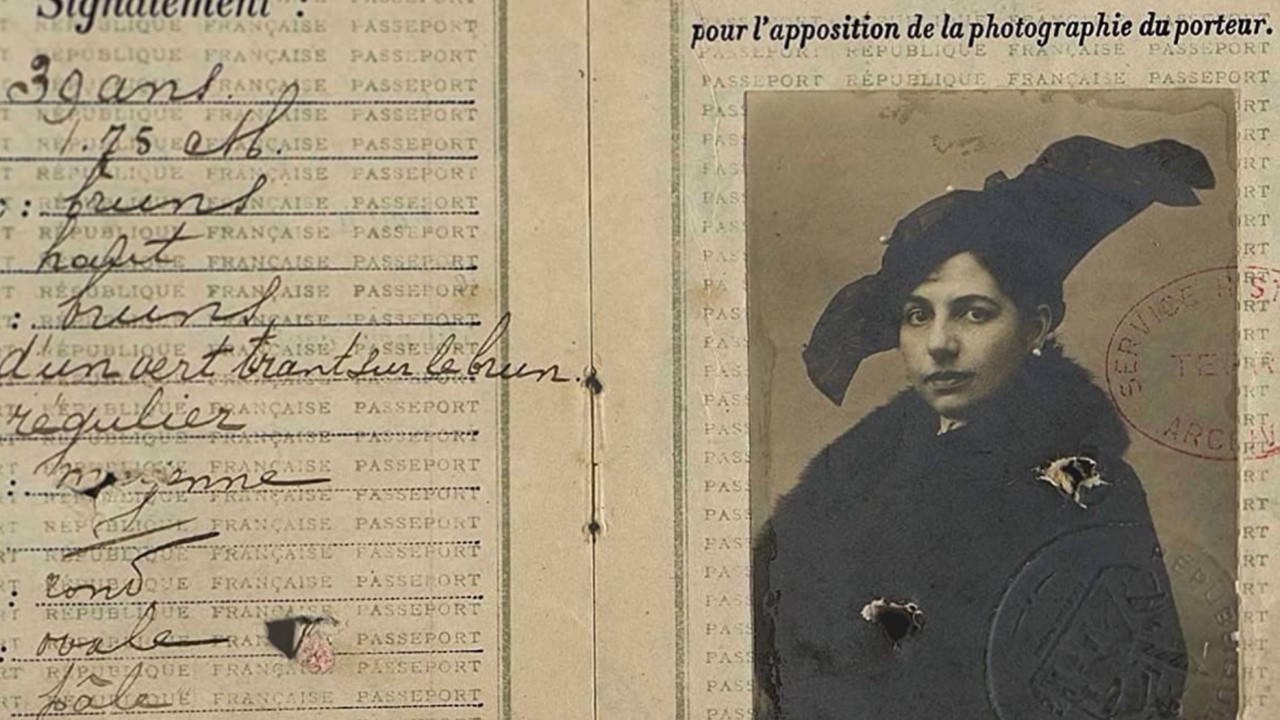 Signalement :
39 ans.
1.75 M.
: bruns
haut
: bruns
d'un vert tirant sur le brun.
régulier
: moyenne
: rond
: ovale
pâle
pour l'apposition de la photographie du porteur.
PASSEPORT RÉPUBLIQUE FRANÇAISE PASSEPORT
SERVICE HIS
TERR
ARCHIV